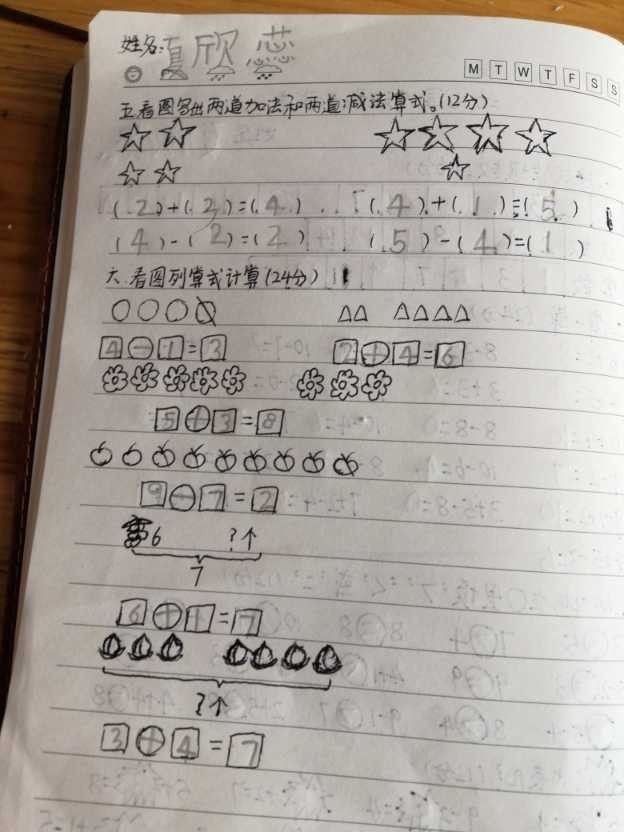 姓名:夏欣蕊
M T W T F S S
五.看图写出两道加法和两道减法算式。(12分)
(2)+(2)=(4) (4)+(1)=(5)
(4)-(2)=(2) (5)-(4)=(1)
六.看图列算式计算(24分)
4-1=3 2+4=6
5+3=8
9-7=2
6 ?个
7
6+1=7
?个
3+4=7